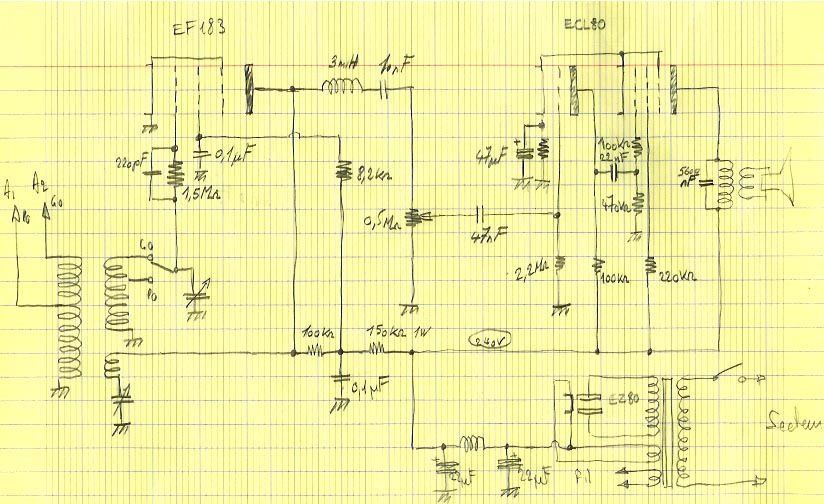 EF183
ECL80
3mH
10nF
220pF
0,1µF
1,5MΩ
8,2kΩ
47µF
100kΩ
22nF
470kΩ
nF
A1
A2
PO
GO
0,5MΩ
47nF
GO
PO
2,2MΩ
100kΩ
220kΩ
100kΩ
150kΩ 1W
240V
0,1µF
EZ80
Secteur
22µF
22µF
Fil